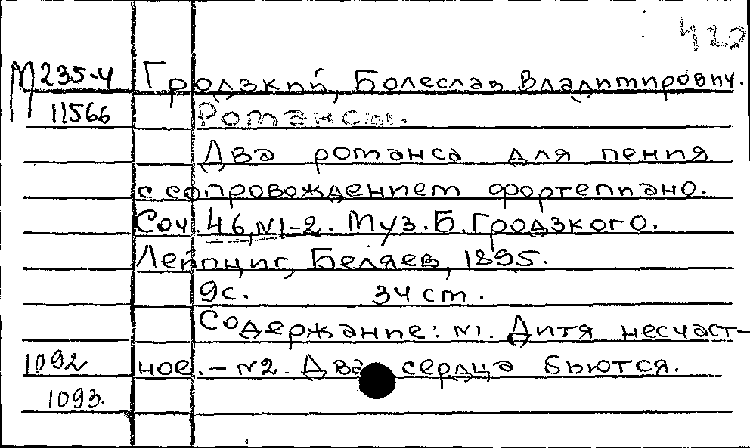 420
М 235-4 Гродзкий, Болеслав Владимирович.
11566 Романсы.
Два романса для пения
с сопровождением фортепиано.
Соч. 46, №1-2. Муз. Б. Гродзкого.
Лейпциг, Беляев, 1895.
9с. 34 см.
Содержание: №1. Дитя несчаст-
1092 ное. - №2. Два сердца бьются.
1093.